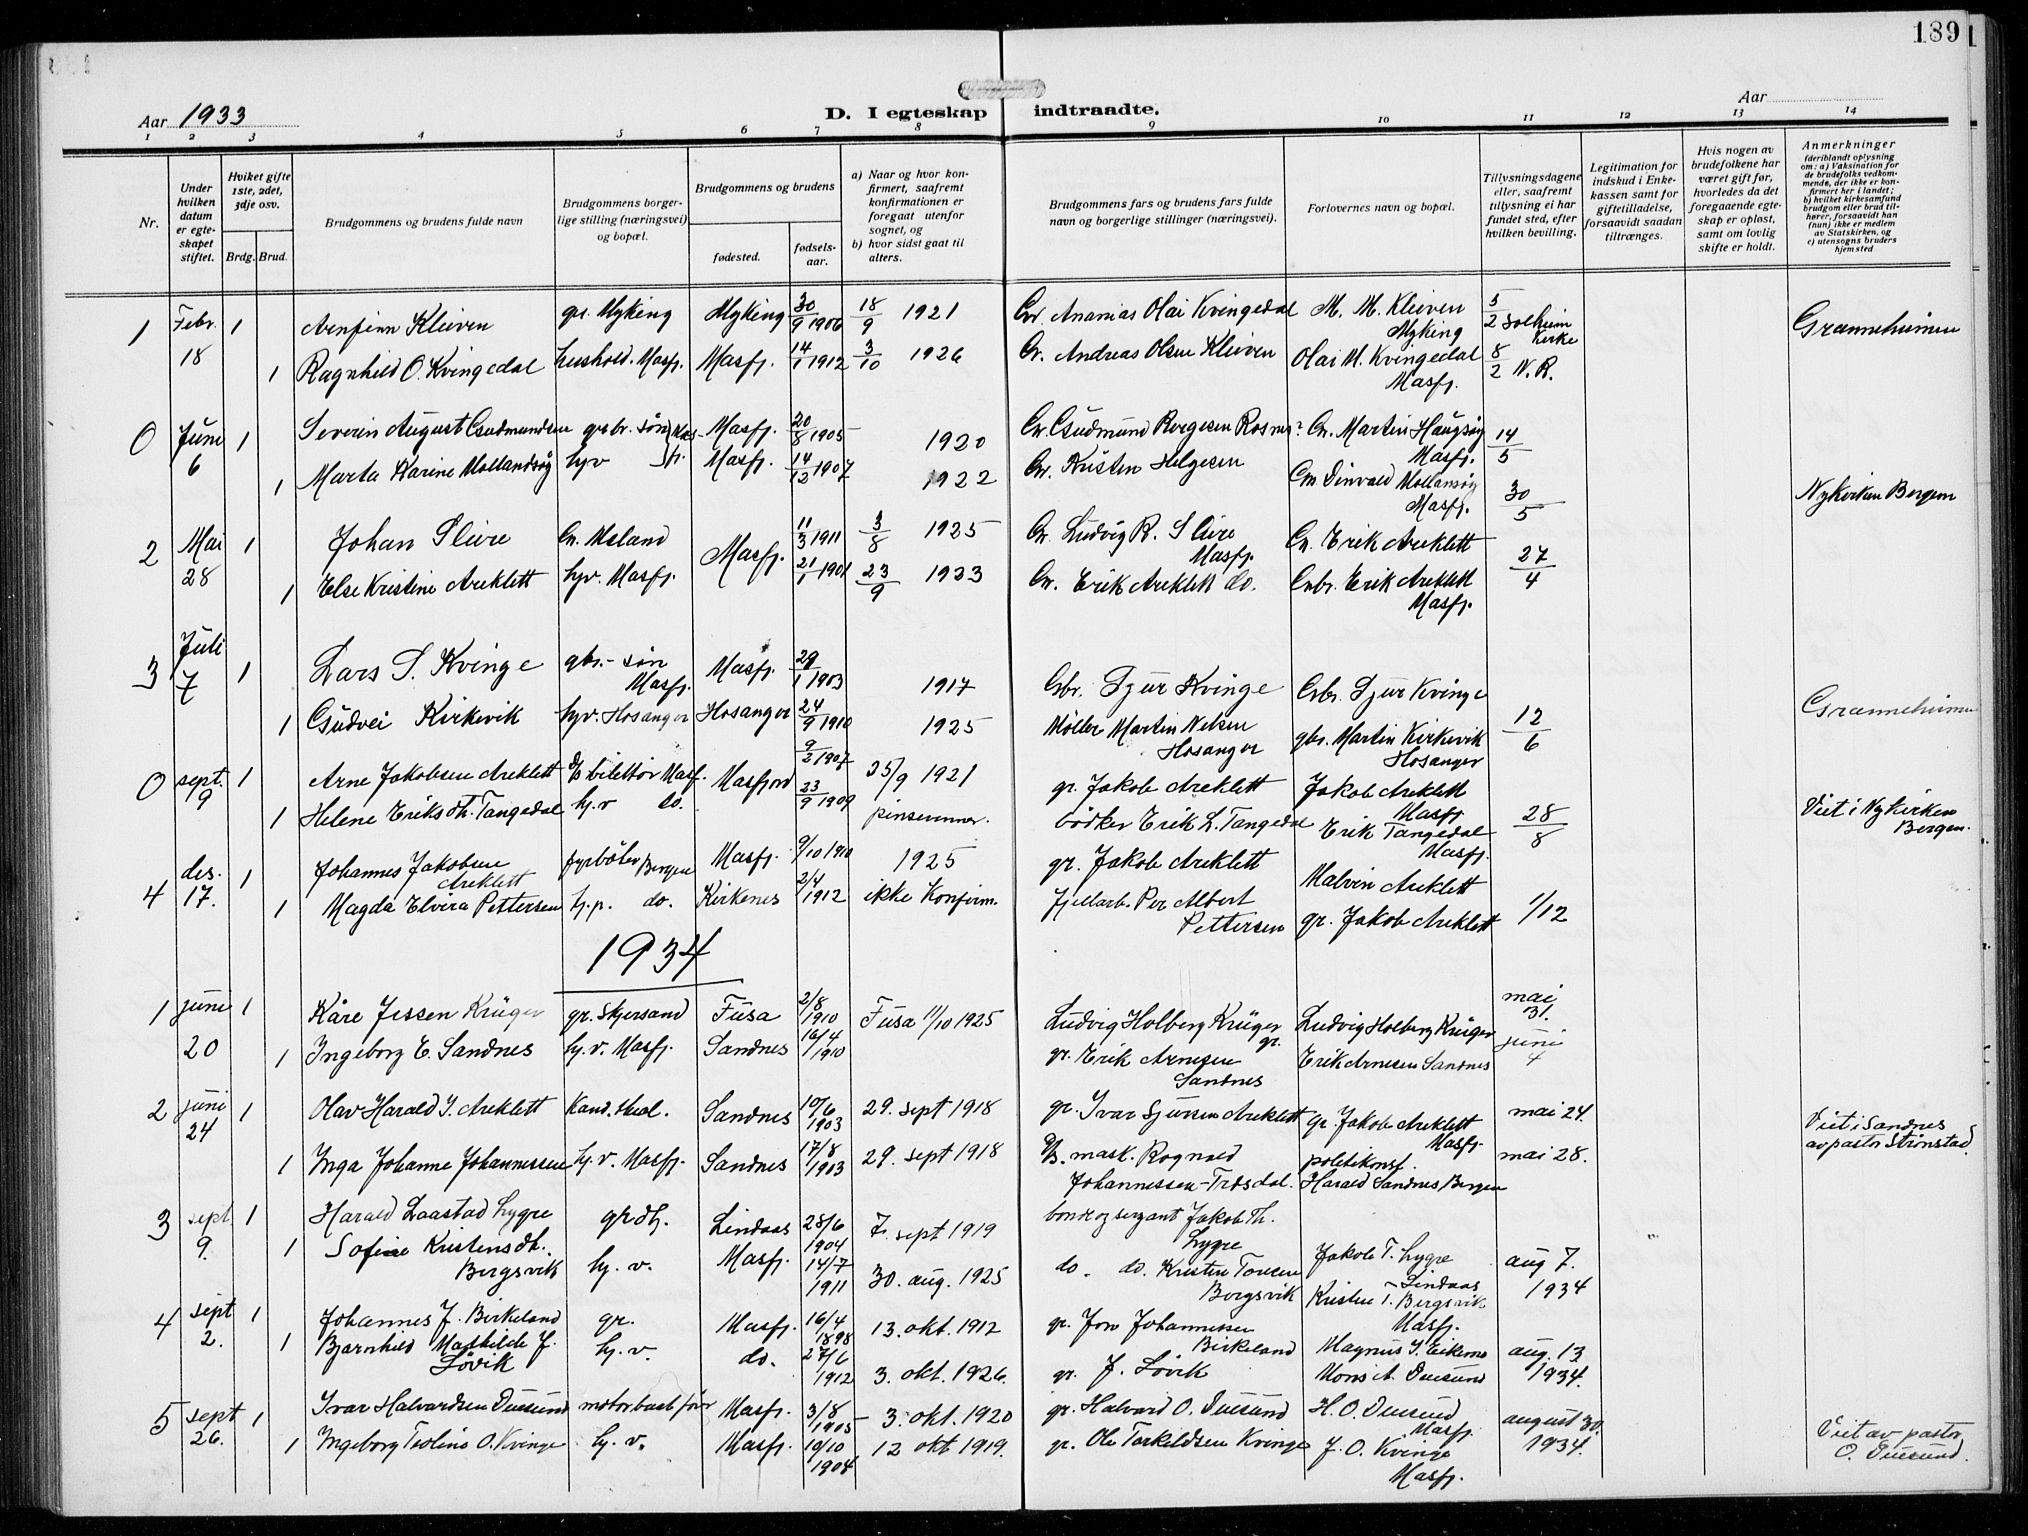 189
Aar 1933
D. I egteskap indtraadte.
Aar
1 2 3 4 5 6 7 8 9 10 11 12 13 14
Nr.
Under hvilken datum er egteskapet stiftet.
Hvilket gifte 1ste, 2det, 3dje osv.
Brdg. Brud.
Brudgommens og brudens fulde navn
Brudgommens borgerlige stilling (næringsvei) og bopæl.
Brudgommens og brudens
fødested.
fødselsaar.
a) Naar og hvor konfirmert, saafremt konfirmationen er foregaat utenfor sognet, og
b) hvor sidst gaat til alters.
Brudgommens fars og brudens fars fulde navn og borgerlige stillinger (næringsvei).
Forlovernes navn og bopæl.
Tillysningsdagene eller, saafremt tillysning ei har fundet sted, efter hvilken bevilling.
Legitimation for indskud i Enkekassen samt for giftetilladelse, forsaavidt saadan tiltrænges.
Hvis nogen av brudefolkene har været gift før, hvorledes da det foregaaende egteskap er opløst, samt om lovlig skifte er holdt.
Anmerkninger
(deriblandt oplysning om: a) Vaksination for de brudefolks vedkommende, der ikke er konfirmert her i landet; b) hvilket kirkesamfund brudgom eller brud tilhører, forsaavidt han (hun) ikke er medlem av Statskirken, og c) utensogns bruders hjemsted
1 Febr. 18 1 Arnfinn Kleiven gr. Myking Myking 30/9 1906 18/9 1921 Gr. Ananias Olai Kvingedal M. M. Kleiven Myking 5/2 Solheim Kirke Grønneheimen
1 Ragnhild O. Kvingedal hushold. Masfj. Masfj. 14/1 1912 3/10 1926 Gr. Andreas Olsen Kleiven Olai M. Kvingedal Masfj. 8/2 N. R.
0 Juni 6 1 Severin August Gudmundsen grbr. søn Masfj. 20/8 1905 1920 Gr. Gudmund Borgesen Gr. Martin Haugsøy Masfj. 14/5
1 Marta Karine Mollandsøy hyv Masfj. 14/12 1907 1922 Gr. Kristen Helgesen Masfj. 30/5 Nykirken Bergen
2 Mai 28 1 Johan Sleire Gr. Masfj. 11/3 1911 3/8 1925 Gr. Ludvig R. Sleire Masfj. Gr. Erik Areklett
1 Else Kristine Areklett hyv. Masfj. 21/1 1901 23/9 1933 Gr. Erik Areklett do. Grbr. Erik Areklett Masfj. 27/4
3 Juli 7 1 Lars S. Kvinge gbr.-søn Masfj. Masfj. 29/1 1903 1917 Gbr. Sjur Kvinge Gbr. Sjur Kvinge Grønneheimen
1 Gudvei Kirkevik hyv. Hosanger Hosanger 24/9 1910 1925 Møller Martin Nelsen Hosanger gbr. Martin Kirkevik Hosanger 12/6
0 sept. 9 1 Arne Jakobsen Areklett D/S bilettør Masf. Masfjord 9/2 1907 25/9 1921 gr. Jakob Areklett Jakob Areklett Masfj Viet i Nykirken Bergen.
1 Helene Eriksdt. Tangedal hj. v do. 23/9 1909 pinsevenner. bødker Erik L. Tangedal Erik Tangedal Masfj. 28/8
4 des. 17. 1 Johannes Jakobsen Areklett fyrbøter Bergen Masfj. 9/10 1910 1925 gr. Jakob Areklett Malvin Areklett
1 Magda Elvira Pettersen hj. p. do. Kirkenes 2/4 1912 ikke Konfirm. Fjellarb. Per Albert Pettersen gr. Jakob Areklett 1/12
1934
1 juni 20 1 Kåre Jessen Krüger gr. Skjersand Fusa 2/8 1910 Fusa 11/10 1925 Ludvig Holberg Krüger gr. Ludvig Holberg Krüger mai 31.
1 Ingeborg E. Sandnes hj. v. Masfj. Sandnes 16/4 1910 gr. Erik Arnesen Sandnes Erik Arnesen Sandnes juni 4
2 juni 24 1 Olav Harald I. Areklett Kand. theol. Sandnes 10/6 1903 29. sept 1918 gr. Ivar Sjursen Areklett gr. Jakob Areklett Masfj. mai 24. Viet i Sandnes av pastor Strønstad.
1 Inga Johanne Johannessen hj. v. Masfj. Sandnes 17/8 1903 29. sept 1918 D/S. mask. Rognald Johannessen-Træsdal. politikonst. Harald Sandnes, Bergen mai 28.
3 sept 9. 1 Harald Laastad Lygre grdb. Lindaas 28/6 1904 7. sept 1919 bonde og sergant Jakob Th. Lygre Jakob T. Lygre Lindaas aug 7. 1934
1 Sofine Kristensdt. Bergsvik hj. v. Masfj. 14/7 1911 30. aug. 1925 do. do. Kristen Bergsvik Kristen T. Bergsvik Masfj.
4 sept 2. 1 Johannes J. Birkeland gr. Masfj. 16/4 1898 13. okt. 1912 gr. Jon Johannessen Birkeland Magnus J. Eikemo aug. 13 1934.
1 Bjarnhild Mathilde J. Løvik hj. v. do. 27/6 1912 3. okt. 1926. gr. J. Løvik Mons A. Duesund
5 sept 26. 1 Ivar Halvardsen Duesund motorbaatfører Masfj. 3/8 1905 3. okt. 1920 gr. Halvard O. Duesund H. O. Duesund Masfj. august 30. 1934. Viet av pastor O. Duesund.
1 Ingeborg Teoline O. Kvinge hj. v. Masfj. 10/10 1904 12 okt 1919. gr. Ole Torkildsen Kvinge J. O. Kvinge Masfj.